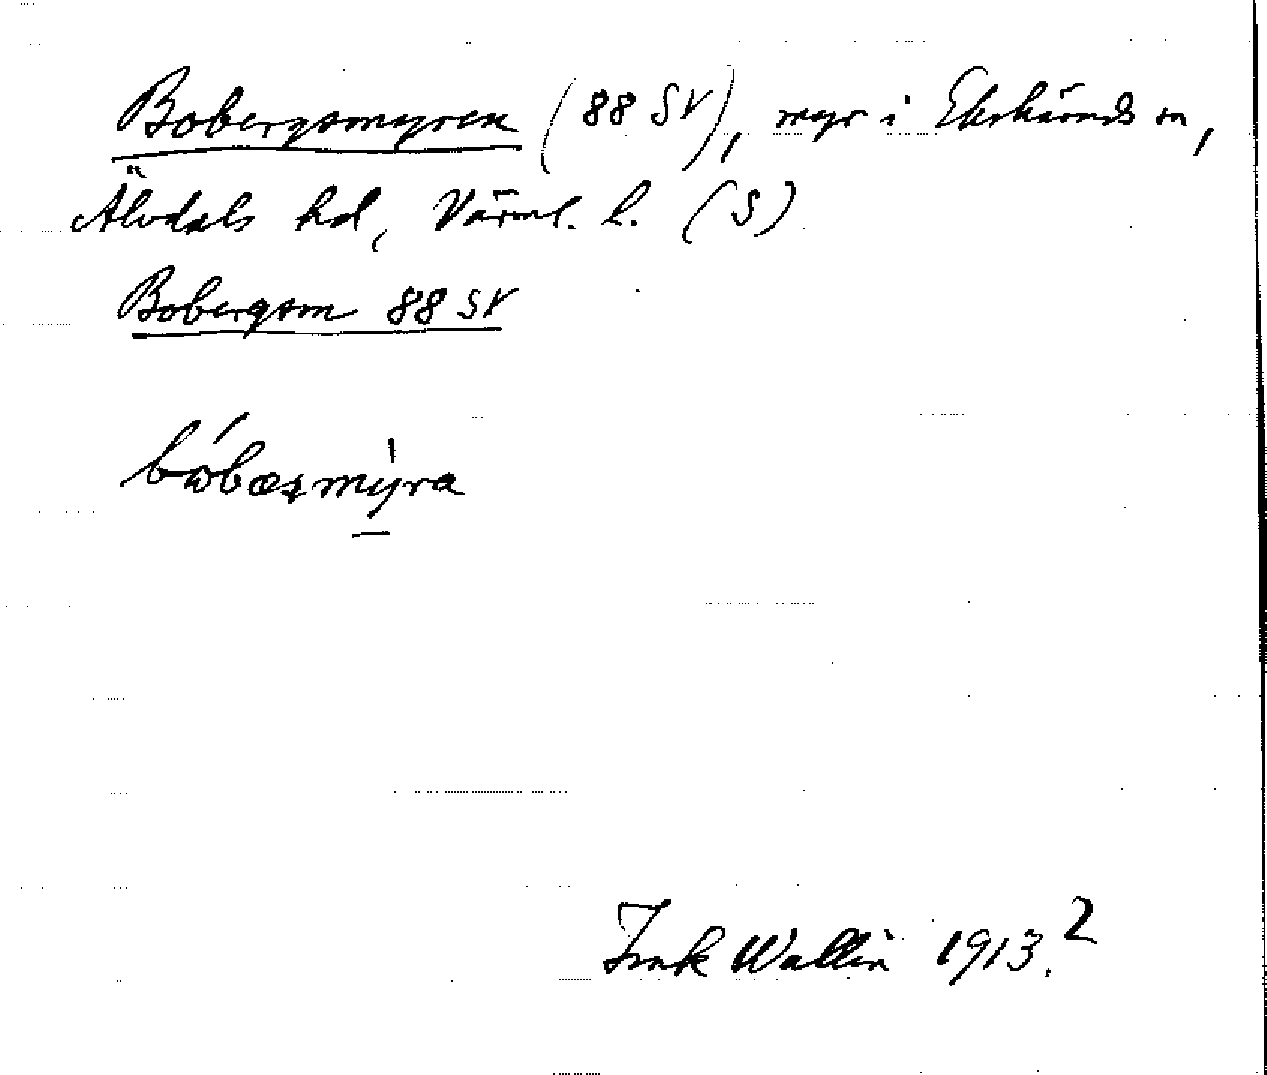 Bobergsmyren (88 SV), myr i Ekshärads sn,
Älvdals hd, Värml. l. (S)
Bobergsm 88 SV
bobæsmyra
Wallin 1913.2